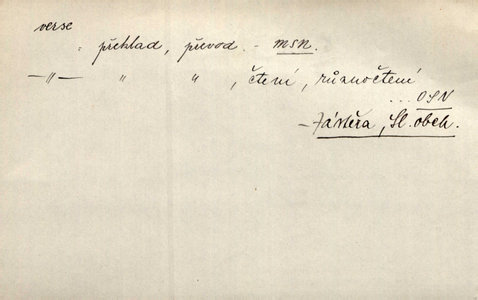 verse
" překlad, převod. - MSN.
—"— " ", čtení, různočtení
... OSN
- Zástěra, Sl. obch.